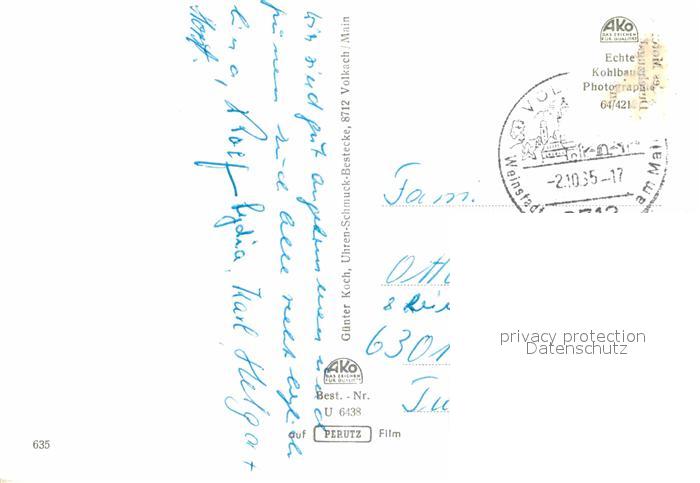 wir sind gut angekommen und
grüssen sie alle recht herzlich
Lina, Rolf Lydia, Karl, Helga +
Horst
Günter Koch, Uhren-Schmuck-Bestecke, 8712 Volkach/Main
AKO
DAS ZEICHEN
FÜR QUALITÄT
Echte
Kohlbau
Photograph
64/421
VOL
-2.10.65-17
Weinstadt
am Mai
8712
Fam.
Ott
8
6301
AKO
DAS ZEICHEN
FÜR QUALITÄT
Best. - Nr.
U 6438
auf PERUTZ Film
635
privacy protection
Datenschutz